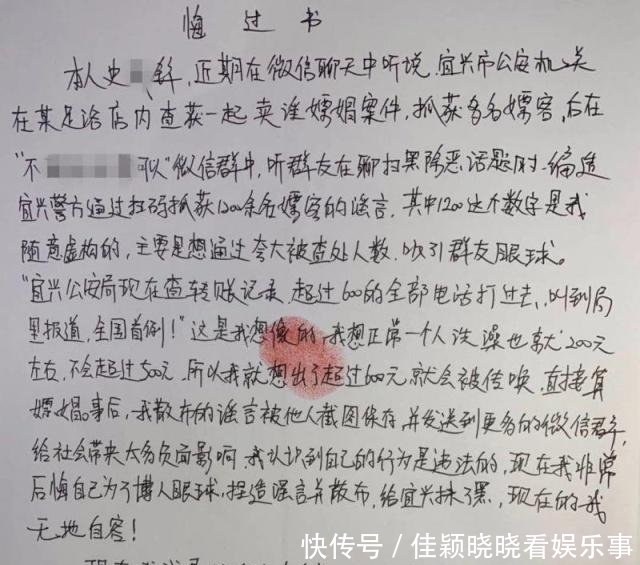 悔过书
本人史 锋,近期在微信聊天中听说,宜兴市公安机关
在某足浴店内查获一起卖淫嫖娼案件,抓获多名嫖客,后在
"不 "微信群中,听群友在聊扫黑除恶话题时,编造
宜兴警方通过扫码抓获1200余名嫖客的谣言,其中1200这个数字是我
随意虚构的,主要是想通过夸大被查处人数,吸引群友眼球。
"宜兴公安局现在查转账记录,超过600的全部电话打过去,叫到局
里报道,全国首例!"这是我想像的,我想正常一个人洗澡也就200元
左右,不会超过500元,所以我就想出了超过600元,就会被传唤,直接算
嫖娼。事后,我散布的谣言被他人截图保存,并发送到更多的微信群,
给社会带来太多负面影响,我认识到自己的行为是违法的,现在我非常
后悔自己为了博人眼球,捏造谣言并散布,给宜兴抹了黑,现在的我
无地自容!
快传号/佳颖晓晓看娱乐事